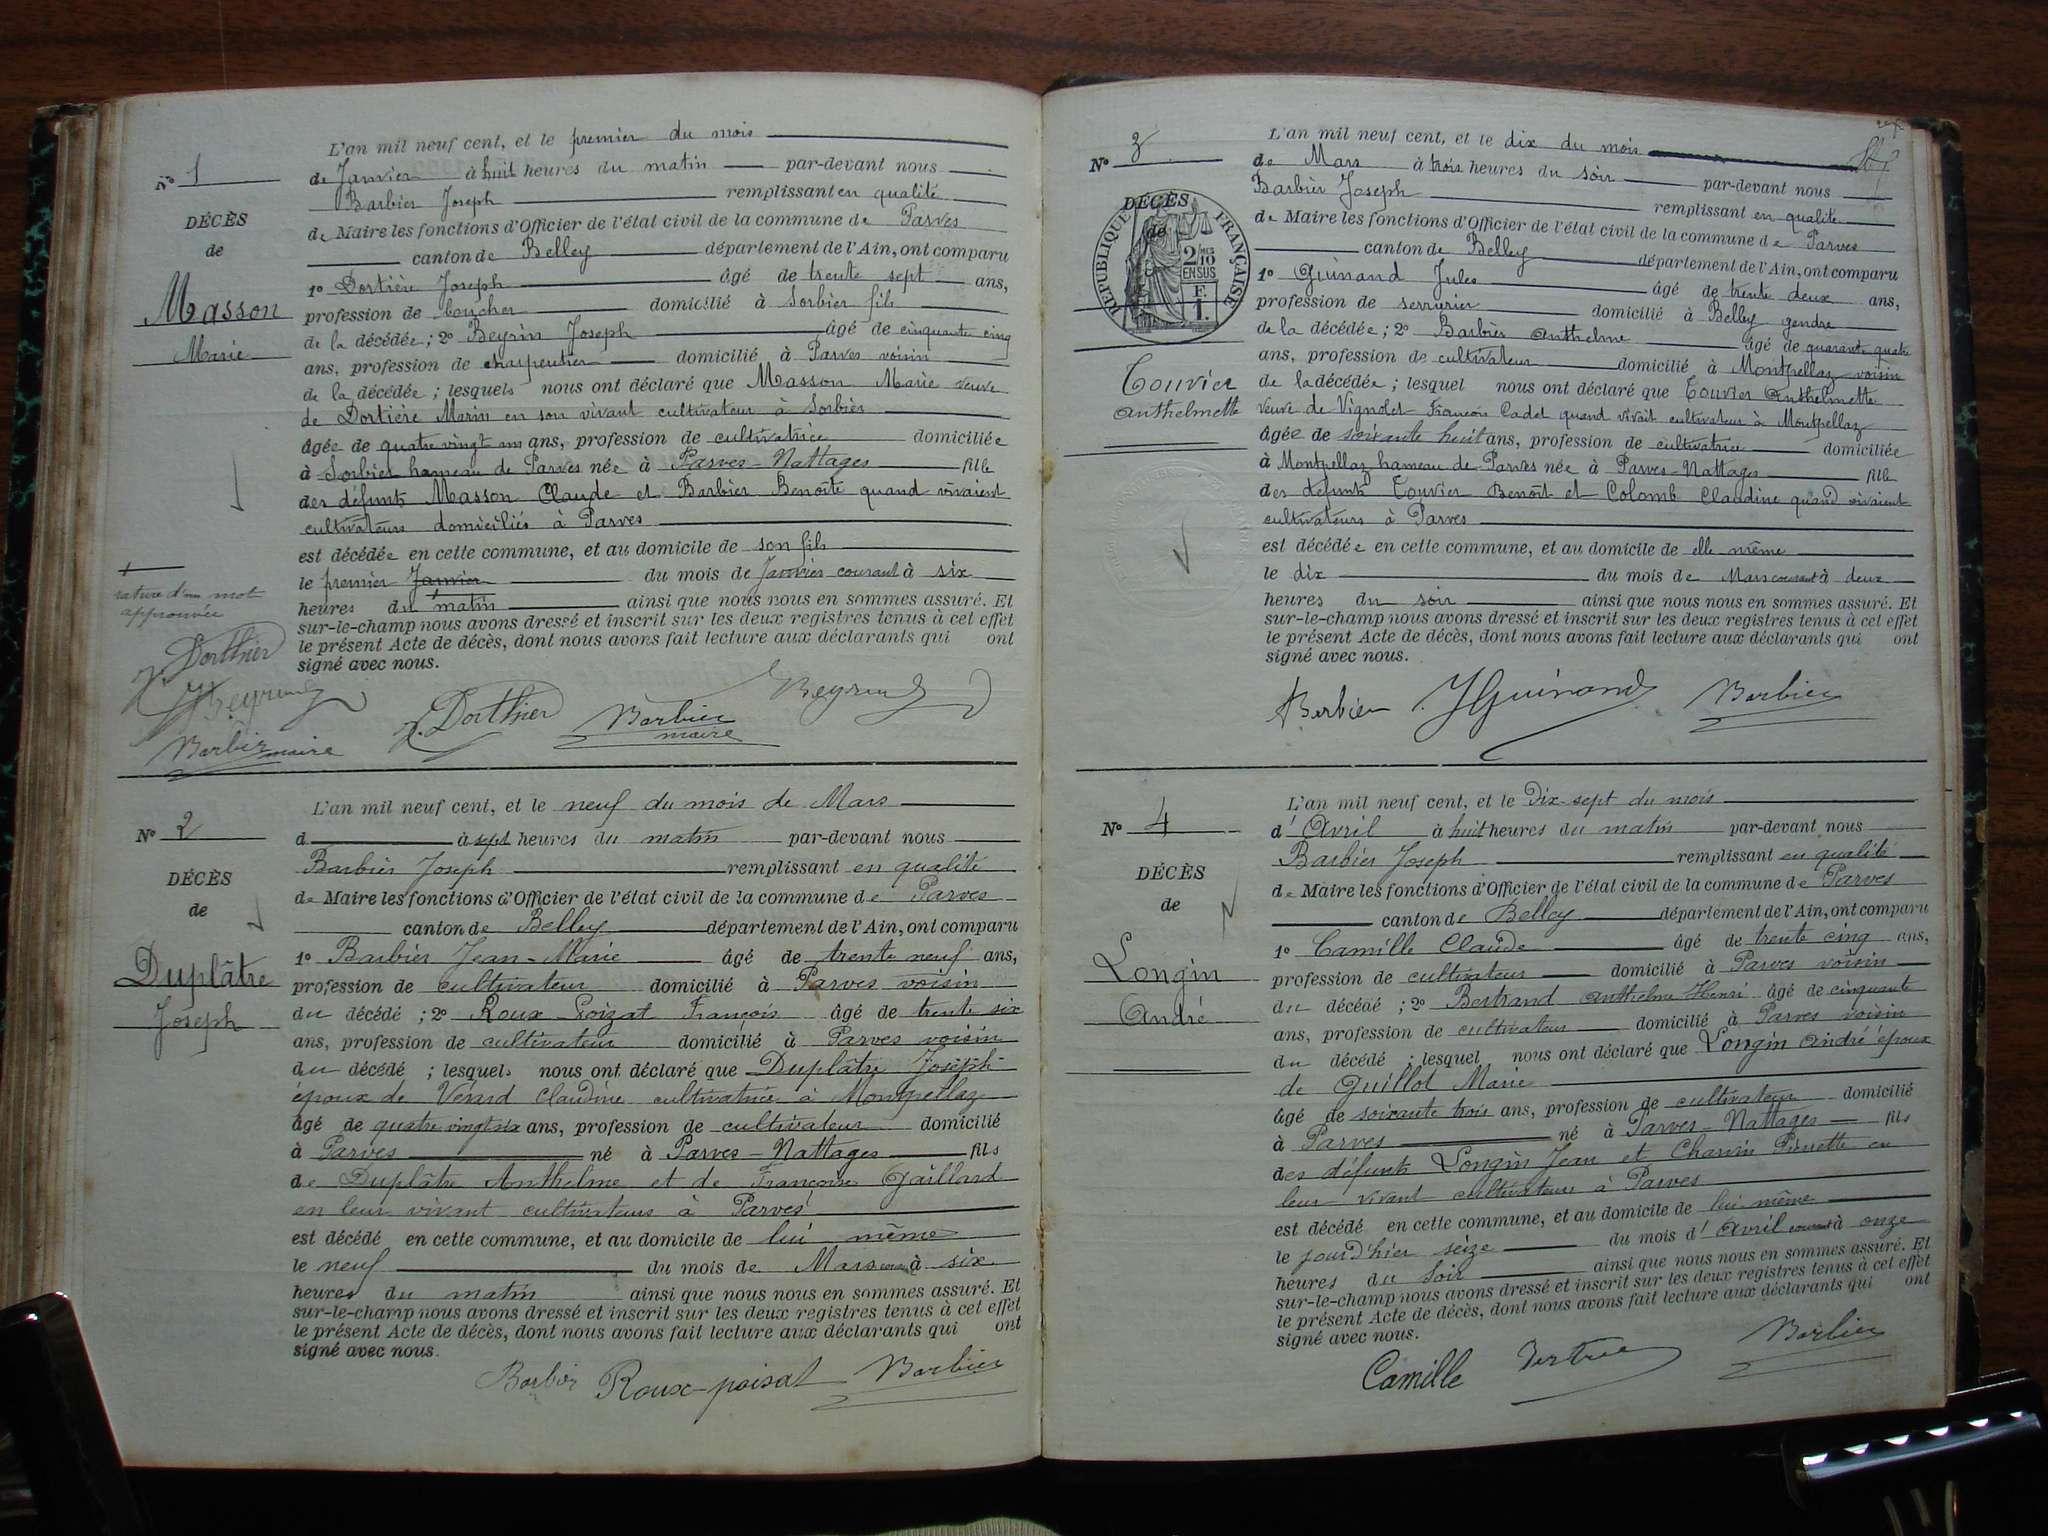 L'an mil neuf cent, et le premier du mois
N° 1
de Janvier à huit heures du matin par-devant nous
Barbier Joseph remplissant en qualité
DÉCÈS
de Maire les fonctions d'Officier de l'état civil de la commune de Parves
de
canton de Belley département de l'Ain, ont comparu
1° Dortière Joseph âgé de trente sept ans,
Masson
profession de boucher domicilié à Sorbier fils
de la décédée ; 2° Beyrin Joseph âgé de cinquante cinq
Marie
ans, profession de charpentier domicilié à Parves voisin
de la décédée ; lesquels nous ont déclaré que Masson Marie veuve
de Dortière Marin en son vivant cultivateur à Sorbier
âgée de quatre vingt un ans, profession de cultivatrice domiciliée
à Sorbier hameau de Parves née à Parves-Nattages fille
des défunts Masson Claude et Barbier Benoîte quand vivaient
cultivateurs domiciliés à Parves
est décédée en cette commune, et au domicile de son fils
le premier Janvier du mois de Janvier courant à six
rature d'un mot
approuvée
heures du matin ainsi que nous nous en sommes assuré. Et
sur-le-champ nous avons dressé et inscrit sur les deux registres tenus à cet effet
le présent Acte de décès, dont nous avons fait lecture aux déclarants qui ont
signé avec nous.
J. Dorthier
Beyrin
Barbier maire
J. Dorthier Barbier maire Beyrin
L'an mil neuf cent, et le neuf du mois de Mars
N° 2
d à sept heures du matin par-devant nous
Barbier Joseph remplissant en qualité
DÉCÈS
de Maire les fonctions d'Officier de l'état civil de la commune de Parves
de
canton de Belley département de l'Ain, ont comparu
1° Barbier Jean-Marie âgé de trente neuf ans,
Duplâtre
profession de cultivateur domicilié à Parves voisin
du décédé ; 2° Roux-Poizat François âgé de trente six
Joseph
ans, profession de cultivateur domicilié à Parves voisin
du décédé ; lesquels nous ont déclaré que Duplâtre Joseph
époux de Vérard Claudine cultivatrice à Montpellaz
âgé de quatre vingt six ans, profession de cultivateur domicilié
à Parves né à Parves-Nattages fils
de Duplâtre Anthelme et de Françoise Gaillard
en leur vivant cultivateurs à Parves
est décédé en cette commune, et au domicile de lui même
le neuf du mois de Mars courant à six
heures du matin ainsi que nous nous en sommes assuré. Et
sur-le-champ nous avons dressé et inscrit sur les deux registres tenus à cet effet
le présent Acte de décès, dont nous avons fait lecture aux déclarants qui ont
signé avec nous.
Barbier Roux-poisat Barbier
L'an mil neuf cent, et le dix du mois
N° 3
de Mars à trois heures du soir par-devant nous
Barbier Joseph remplissant en qualité
DÉCÈS
de
RÉPUBLIQUE FRANÇAISE
2/10 EN SUS
F. 1.
de Maire les fonctions d'Officier de l'état civil de la commune de Parves
canton de Belley département de l'Ain, ont comparu
1° Guinand Jules âgé de trente deux ans,
profession de serrurier domicilié à Belley gendre
de la décédée ; 2° Barbier Anthelme âgé de quarante quatre
ans, profession de cultivateur domicilié à Montpellaz voisin
Touvier
Anthelmette
de la décédée ; lesquel nous ont déclaré que Touvier Anthelmette
veuve de Vignolet François Cadet quand vivait cultivateur à Montpellaz
âgée de soixante huit ans, profession de cultivatrice domiciliée
à Montpellaz hameau de Parves née à Parves-Nattages fille
des défunts Touvier Benoît et Colomb Claudine quand vivaient
cultivateurs à Parves
est décédée en cette commune, et au domicile de elle même
le dix du mois de Mars courant à deux
heures du soir ainsi que nous nous en sommes assuré. Et
sur-le-champ nous avons dressé et inscrit sur les deux registres tenus à cet effet
le présent Acte de décès, dont nous avons fait lecture aux déclarants qui ont
signé avec nous.
Barbier JGuinand Barbier
L'an mil neuf cent, et le Dix-sept du mois
N° 4
d'Avril à huit heures du matin par-devant nous
Barbier Joseph remplissant en qualité
DÉCÈS
de Maire les fonctions d'Officier de l'état civil de la commune de Parves
de
canton de Belley département de l'Ain, ont comparu
1° Camille Claude âgé de trente cinq ans,
Longin
profession de cultivateur domicilié à Parves voisin
du décédé ; 2° Bertrand Anthelme Henri âgé de cinquante
André
ans, profession de cultivateur domicilié à Parves voisin
du décédé ; lesquel nous ont déclaré que Longin André époux
de Guillot Marie
âgé de soixante trois ans, profession de cultivateur domicilié
à Parves né à Parves-Nattages fils
des défunts Longin Jean et Charvin Pierrette en
leur vivant cultivateurs à Parves
est décédé en cette commune, et au domicile de lui-même
le jour d'hier seize du mois d'Avril courant à onze
heures du soir ainsi que nous nous en sommes assuré. Et
sur-le-champ nous avons dressé et inscrit sur les deux registres tenus à cet effet
le présent Acte de décès, dont nous avons fait lecture aux déclarants qui ont
signé avec nous.
Camille Barbier